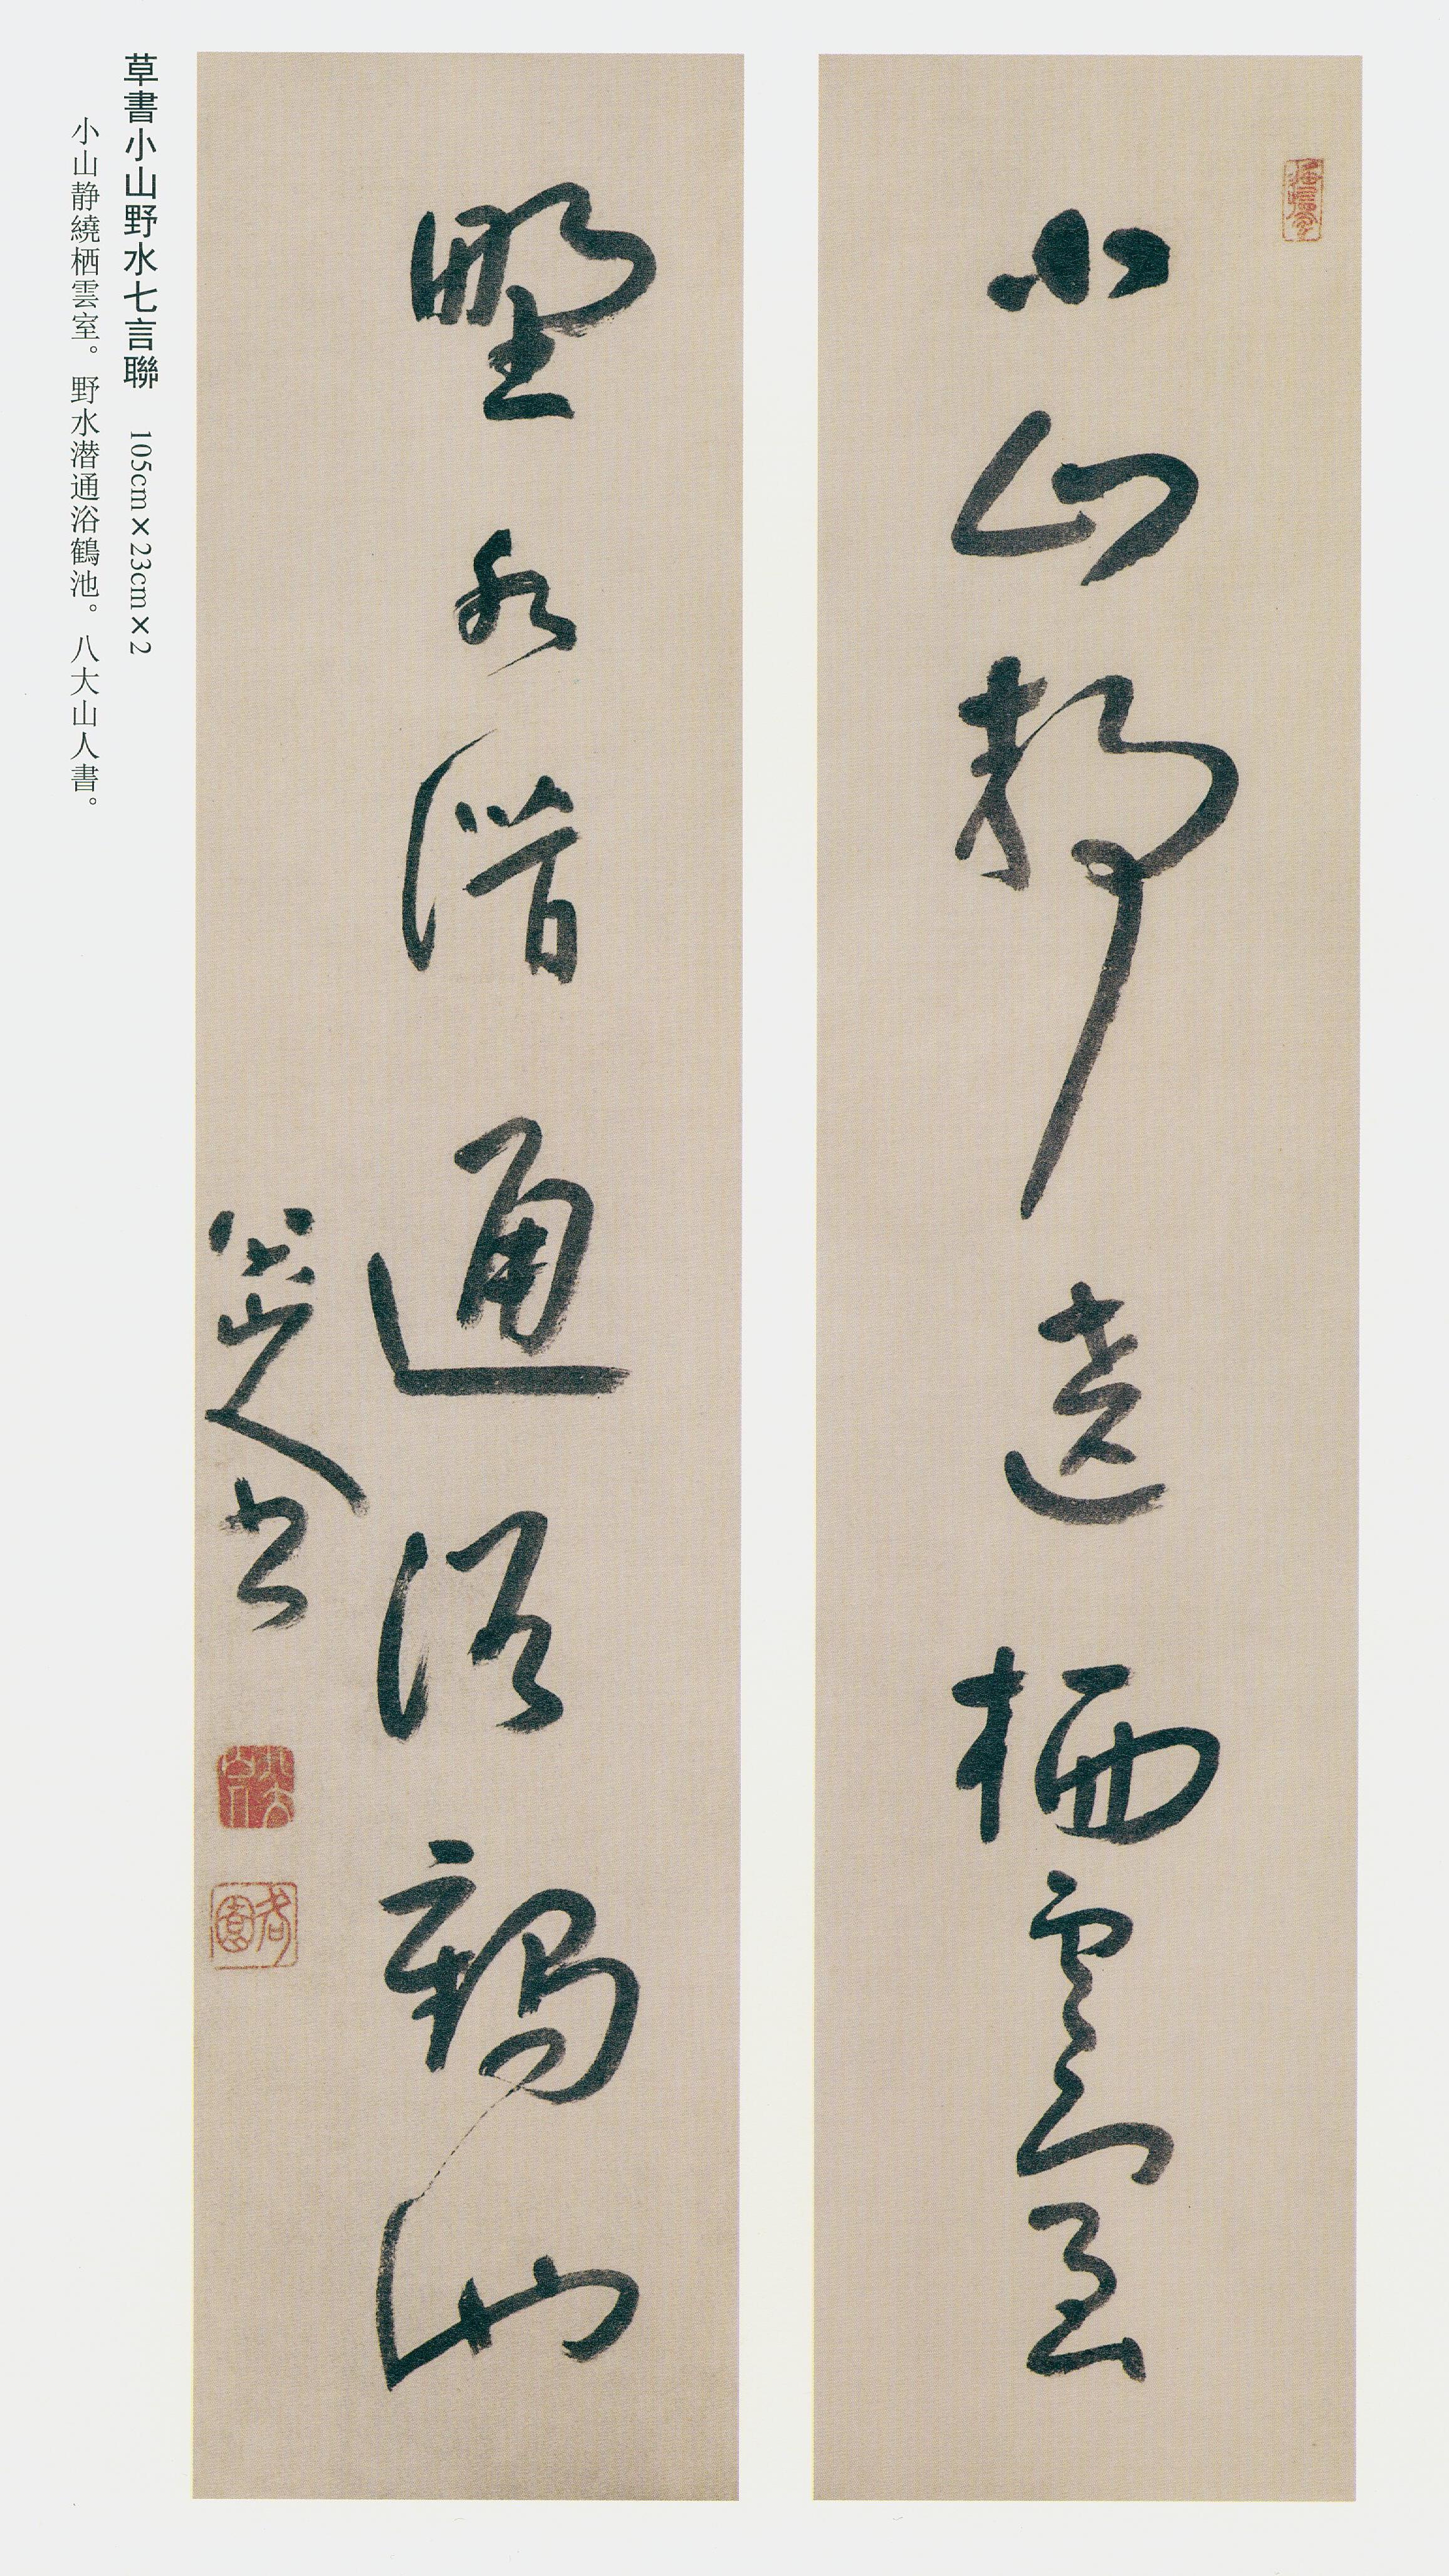 小山静遶栖雲室
野水潛通浴鶴池
八大山人書
八大山人
何園
草書小山野水七言聯 105cm×23cm×2
小山静繞栖雲室。野水潜通浴鶴池。八大山人書。